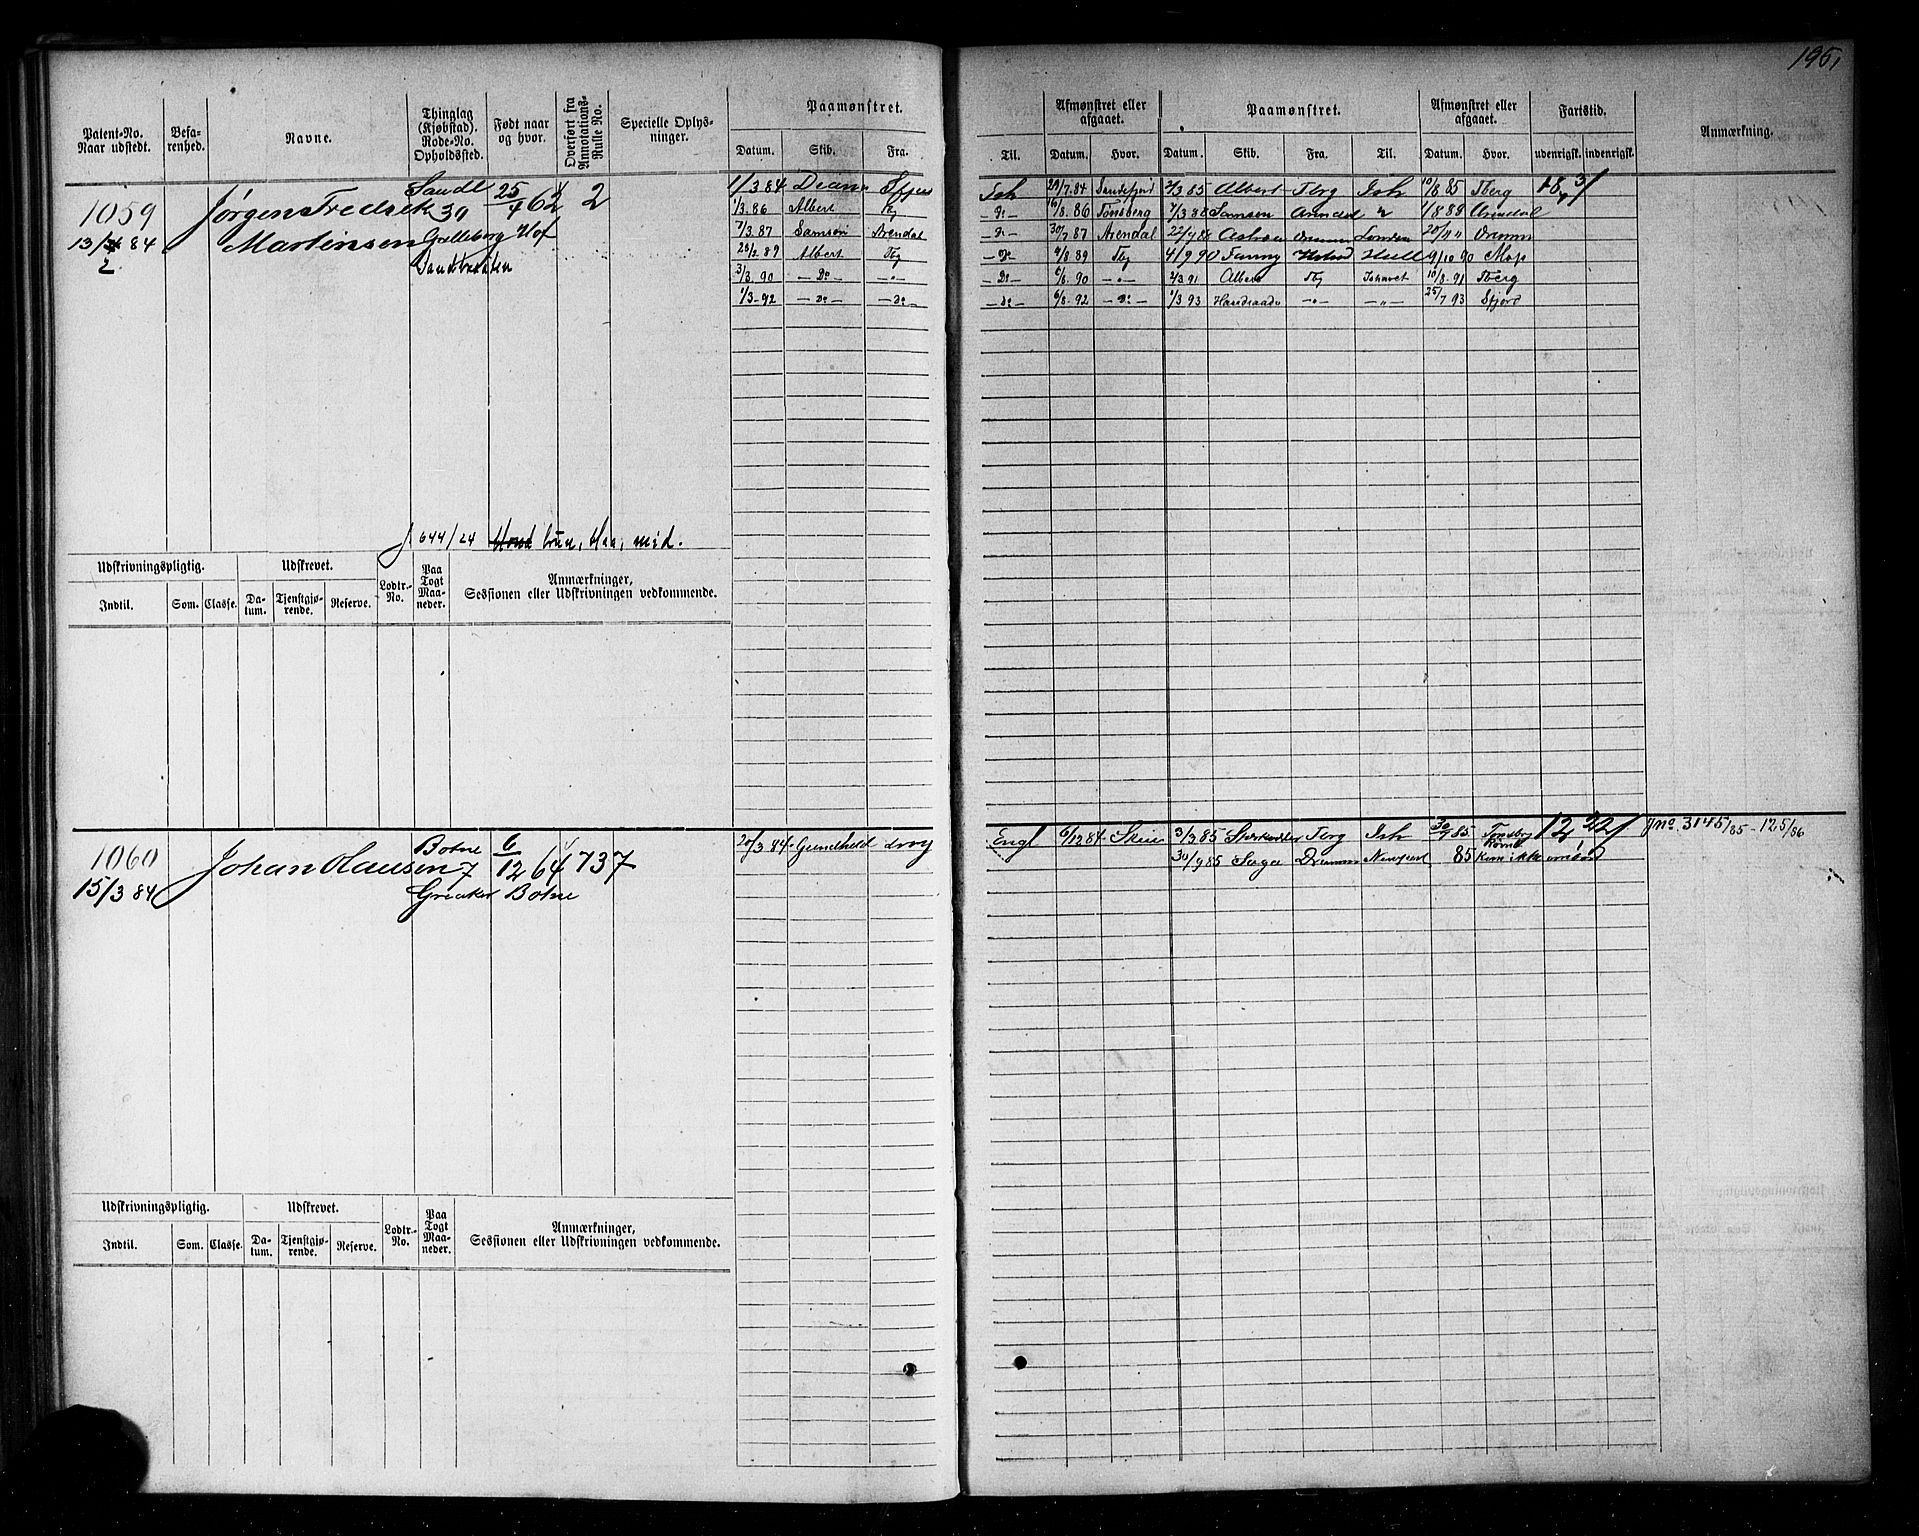 195,
Patent-No. Naar udstedt. Befa-renhed. Navne. Thinglag (Kjøbstad). Rode-No. Opholdssted. Født naar og hvor. Overført fra Annotations-Rulle No. Specielle Oplys-ninger. Paamønstret. Datum. Skib. Fra.
Til. Afmønstret eller afgaaet. Datum. Hvor. Paamønstret. Datum. Skib. Fra. Til. Afmønstret eller afgaaet. Datum. Hvor. Fartstid. udenrigsk. indenrigsk. Anmærkning.
1059 Jørgen Fredrik Sandl 25/4 62 2 1/3 84 Diana Sfjord
13/2 84 Martinsen 39 Hof 1/3.86 Albert Tbg
7/3.87 Samson Arendal
28/2 89 Albert Tbg
3/3.90 -Do- -"-
1/3-92 -do- -do-
Ish 7.84 Sandefjord 3 85 Albert Tbrg Ish 10/8 85 Tberg 18, 3/
-Do- 8.86 Tønsberg 3 88 Samson Arendal " 1/8 89 Arendal
-Do- 30/7 87 Arendal 22/9 88 London Dramm
-Do- 8 89 Tbg 4/9 90 Fanny Hull 9/10 90 Mos
-Do- 6/8.90 -"- 3 91 Albert Tbg Ishavet 10/8.91 Tberg
-do- 6/8.92 -Do- 1/3 93 Haardraade -"- -"- 25/7 93 Sfjord
644/24 brun, blaa, mid.
Udskrivningspligtig. Udskrevet. Lodtr.-No. Paa Togt Maa-neder. Anmærkninger, Sessionen eller Udskrivningen vedkommende.
Indtil. Som. Classe. Da-tum. Tjenstgjø-rende. Reserve.
1060 Johan Olausen Botne 6/12 64 737 20/3 84 Gundhild
15/3 84 7 Greaker Botne
Engl 6/12 84 Skien 3/3 85 Tbrg Ish 30/7 85 Tønsberg 12, 22/ Jno. 3145/85 - 125/86
30/9 85 Saga Dramm Newport 85 Rømt Kom ikke ombord
Udskrivningspligtig. Udskrevet. Lodtr.-No. Paa Togt Maa-neder. Anmærkninger, Sessionen eller Udskrivningen vedkommende.
Indtil. Som. Classe. Da-tum. Tjenstgjø-rende. Reserve.